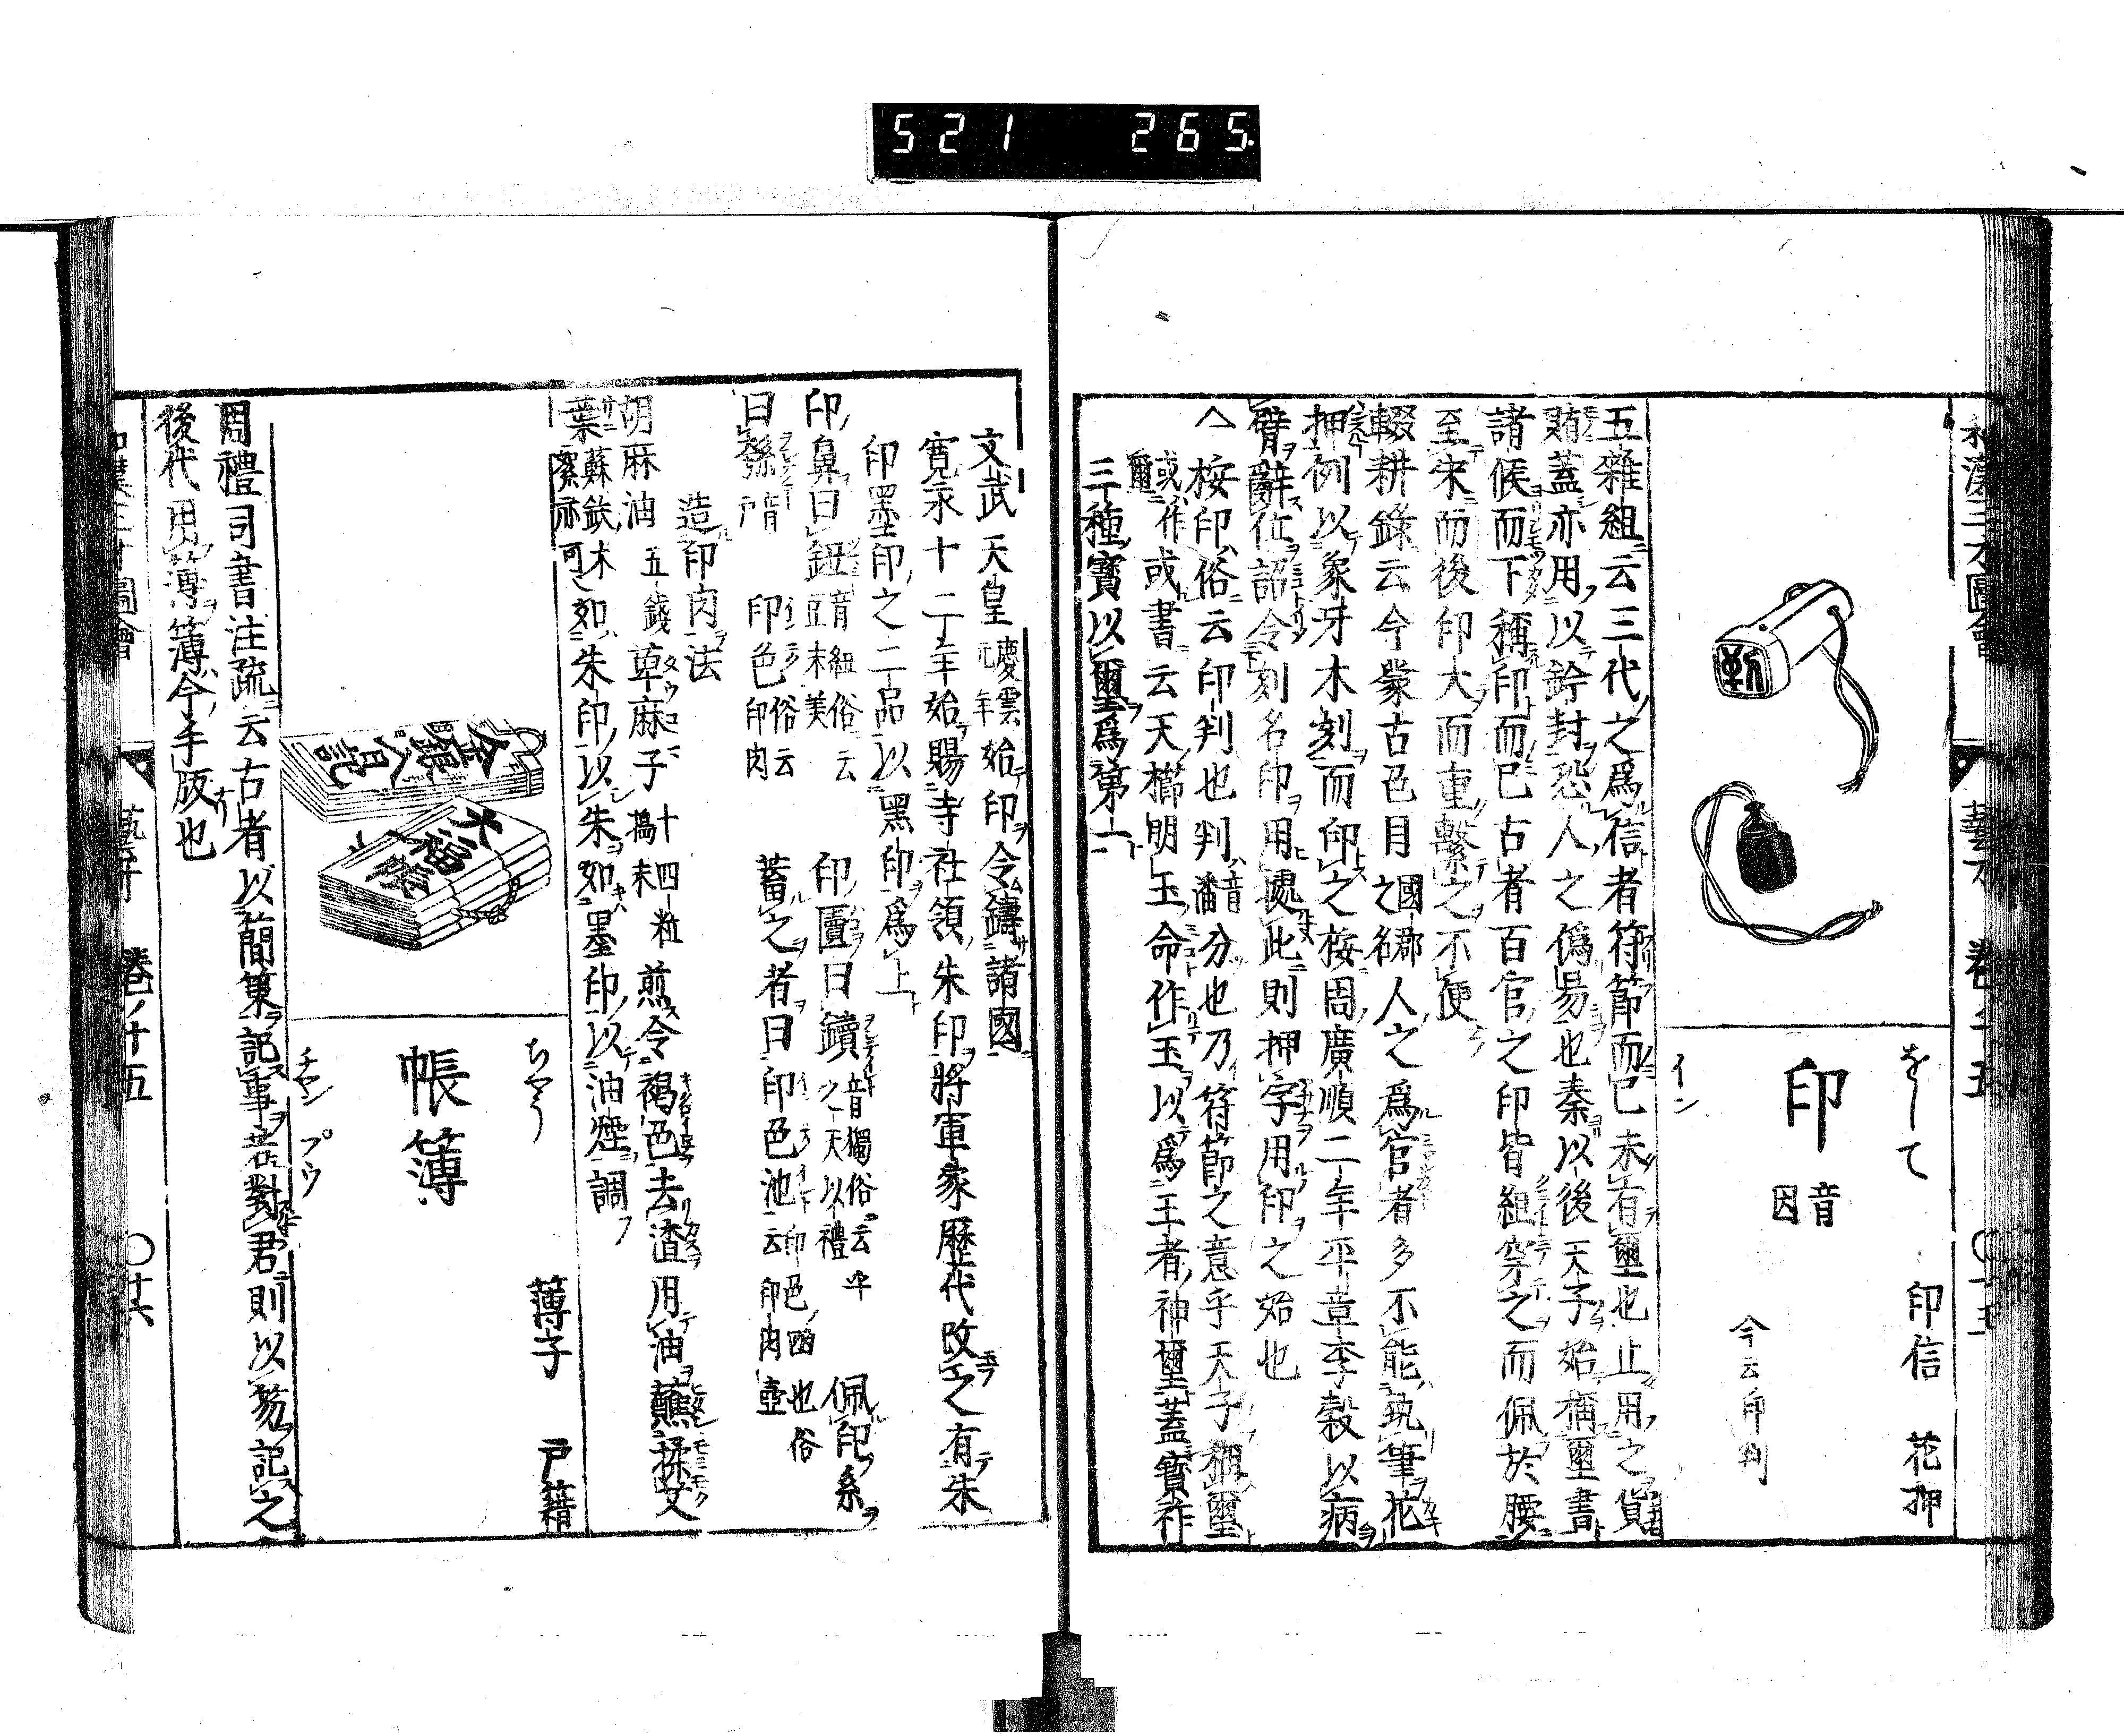 521 265.
和漢三才圖會 藝才 卷ノ十五 〇十五
をして
印 音因
イン
印信 花押
今云印判
五雜組云三代之爲信者符節而已未有璽也止用之貨
賄蓋亦用以鈐封恐人之僞易也秦以後天子始稱璽書
諸侯而下稱印而已古者百官之印皆組穿之而佩於腰
至宋而後印大而重繫之不便
輟耕錄云今蒙古色目國郡之人之爲官者多不能執筆花
押例以象牙木刻而印之按周廣順二年平章李穀以病
臂辭位詔令刻名印用處此則押字用印之始也
△按印俗云印判也判音潘分也乃符節之意乎天子稱璽
或作璽
或書云天櫛明玉命作玉以爲王者神璽蓋寶祚
三種寶以璽爲第一
文武天皇慶雲元年始印令鑄諸國
寛永十二年始賜寺社領朱印將軍家歷代改之有朱
印墨印之二品以黑印爲上
印鼻曰鈕音紐俗云豆末美 印匵曰鑟音獨俗云之天以禮 佩印系
曰 印色俗云印肉 蓄之者曰印色池印色函也俗云印肉壺
造印肉法
胡麻油五錢草麻子十四粒搗末煎令褐色去渣用油蘸揉艾
葉 如朱印以朱如墨印以油煙調
ちやう
帳簿
チヤン プウ
薄子 戸籍
金銀入日記
大福帳
周禮司書注疏云古者以簡策記事若對君則以笏記之
後代用簿簿今手版也
和漢三才圖會 藝才 卷ノ十五 〇十六